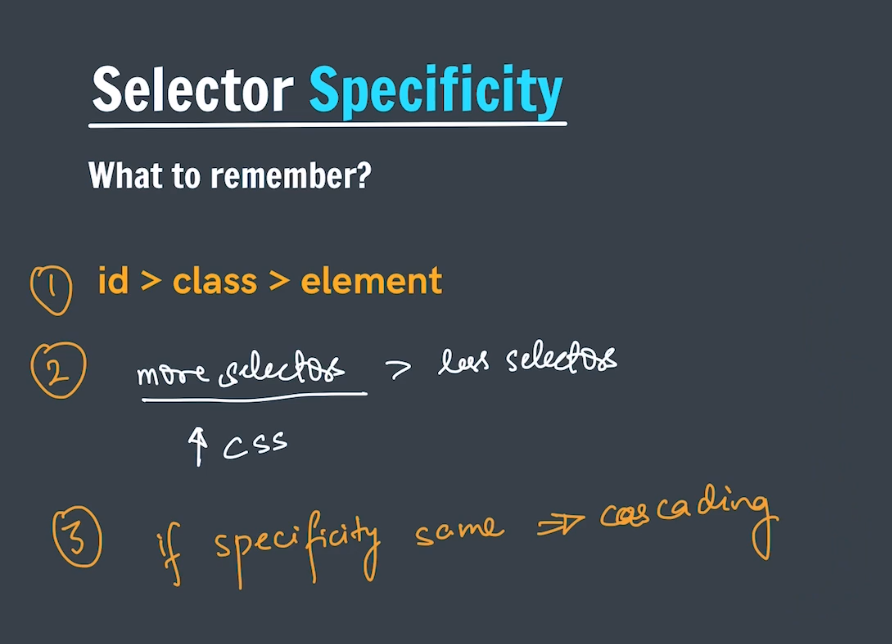 Selector Specificity
What to remember?
1 id > class > element
2 more selectors > less selectors
↑ CSS
3 if specificity same ⇒ cascading